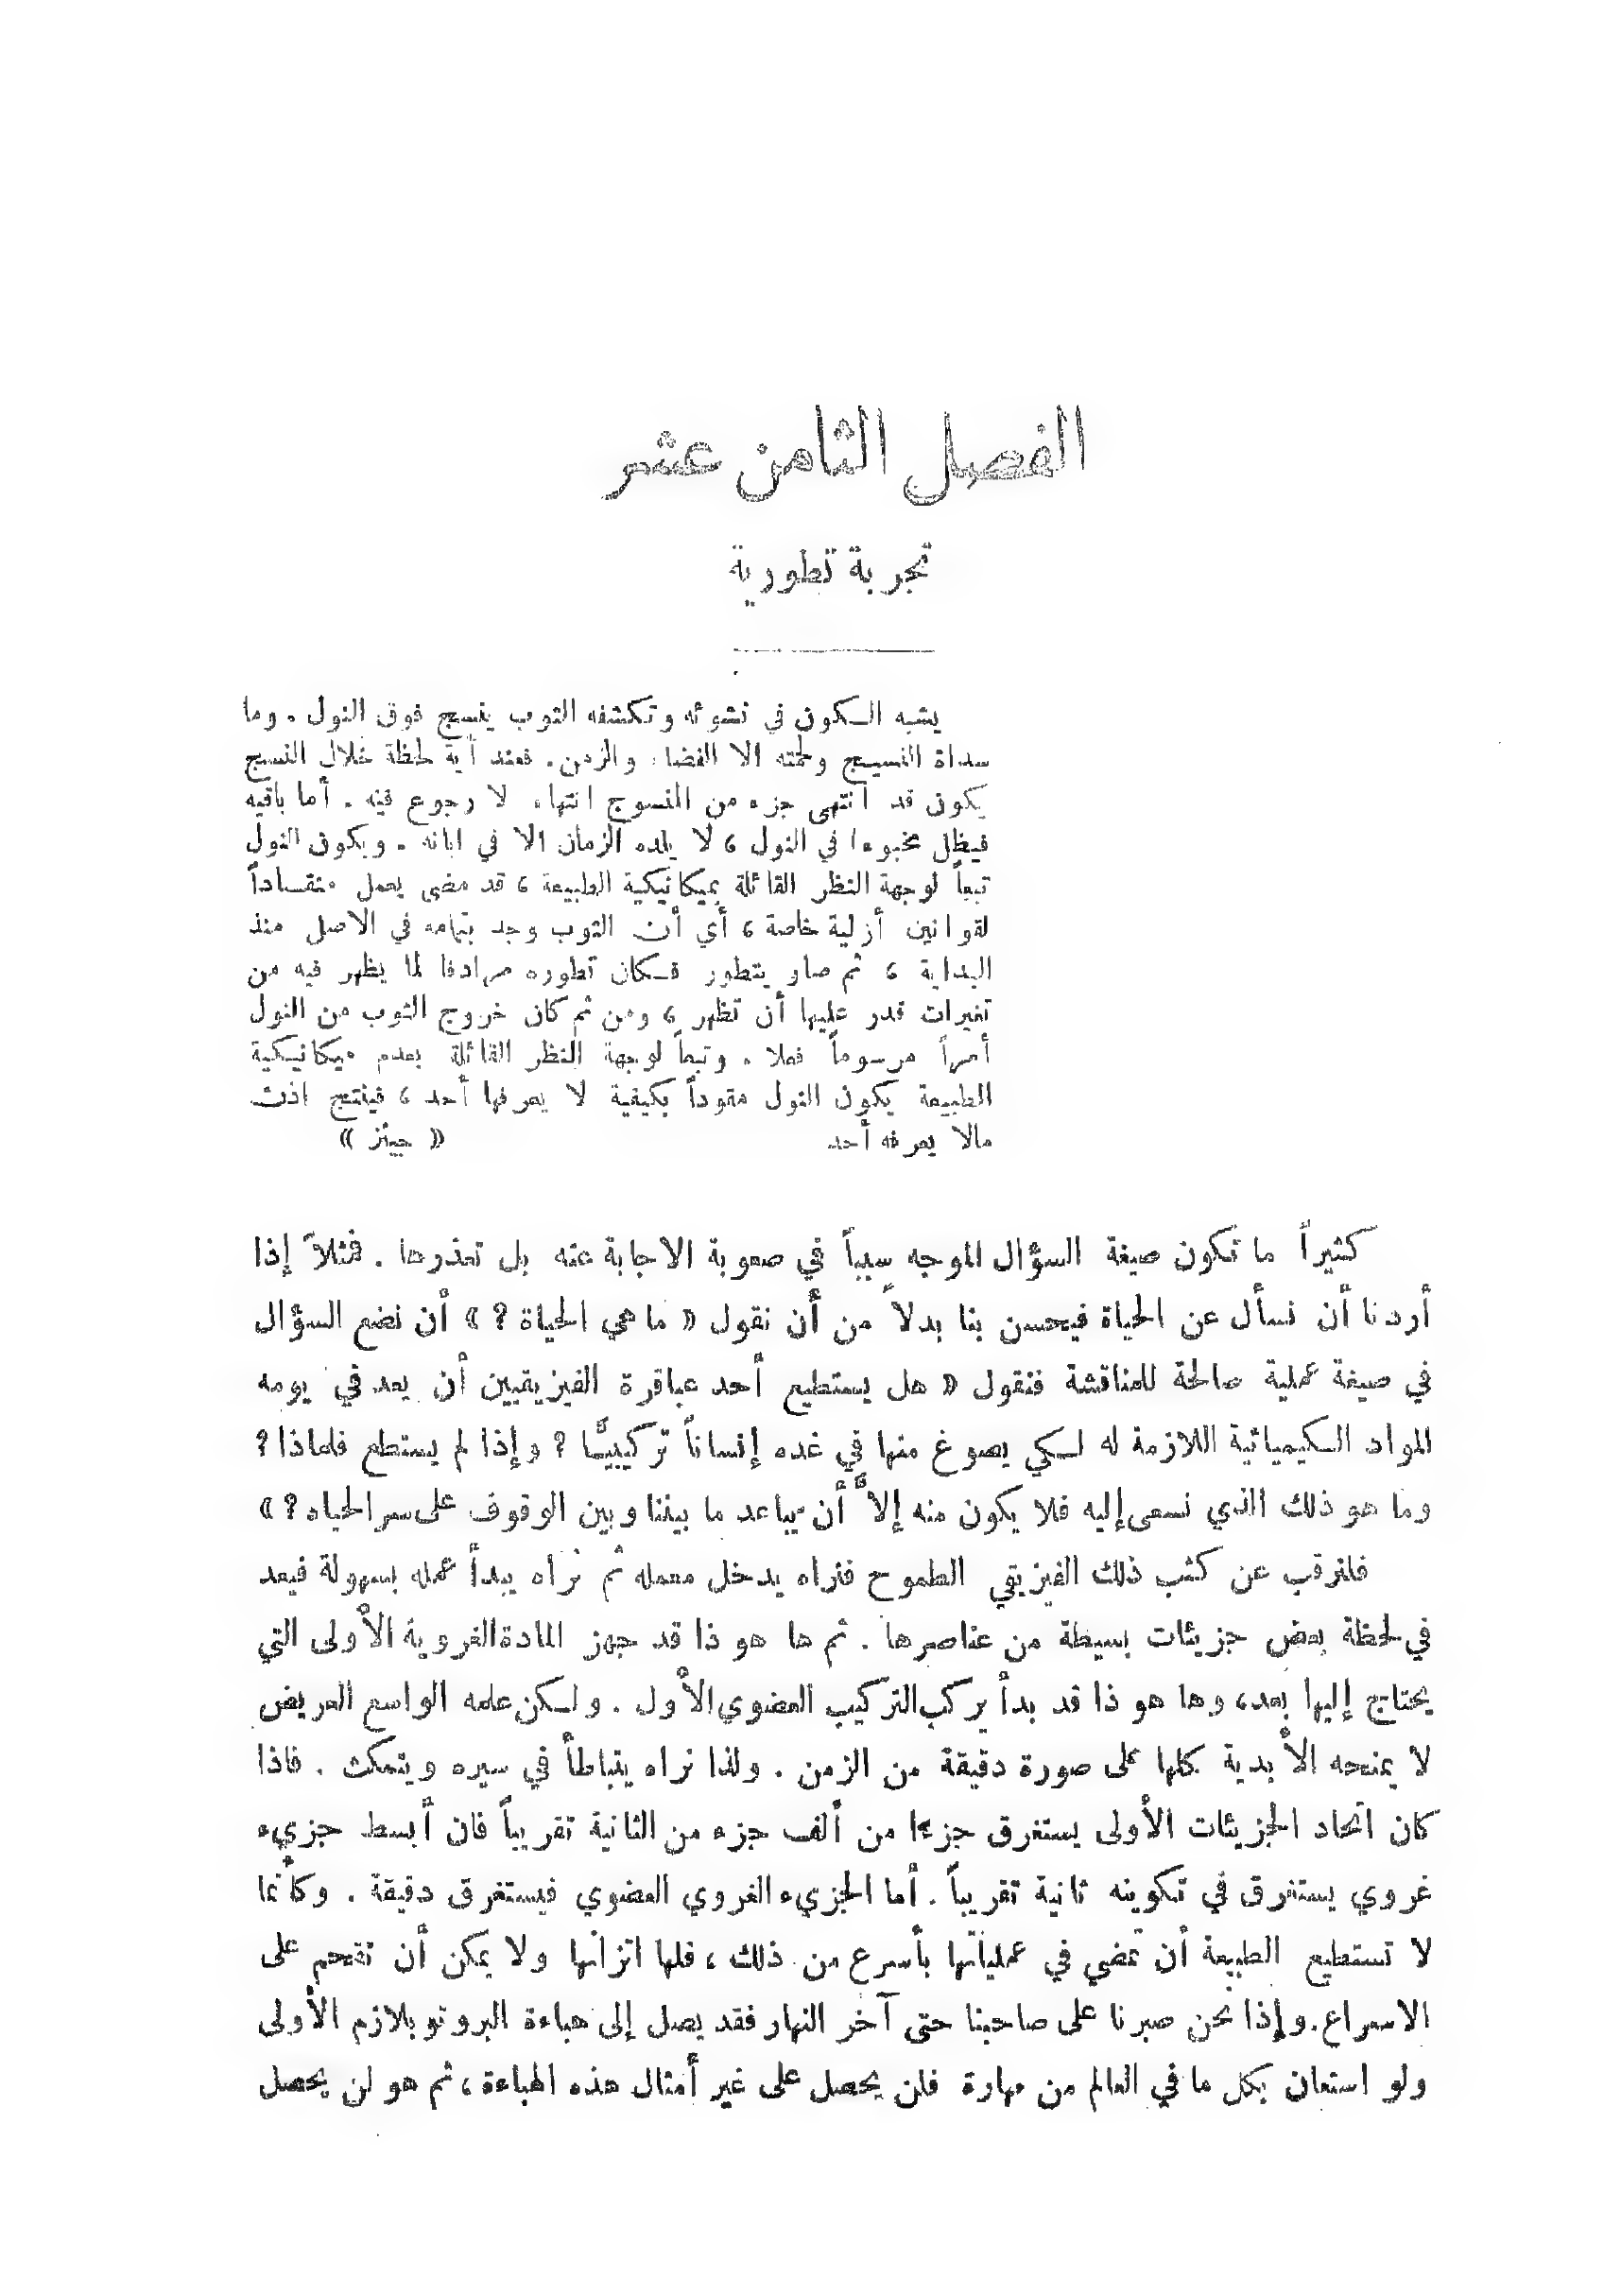 الفصل الثامن عشر
تجربة تطورية
يشبه الكون في نشوئه وتكشفه الثوب ينسج فوق النول . وما
سداة النسيج ولحمته الا الفضاء والزمن . فعند أية لحظة خلال النسج
يكون قد انتهى جزء من المنسوج انتهاء لا رجوع فيه . أما باقيه
فيظل مخبوءا في النول ، لا يلده الزمان الا في ابانه . ويكون النول
تبعاً لوجهة النظر القائلة بميكانيكية الطبيعة ، قد مضى يعمل منقاداً
لقوانين أزلية خاصة ، أي أن الثوب وجد بتمامه في الاصل منذ
البداية ، ثم صار يتطور فكان تطوره مرادفا لما يظهر فيه من
تغيرات قدر عليها أن تظهر ، ومن ثم كان خروج الثوب من النول
أمراً مرسوماً فعلا . وتبعاً لوجهة النظر القائلة بعدم ميكانيكية
الطبيعة يكون النول مقوداً بكيفية لا يعرفها أحد ، فينتج اذن
مالا يعرفه أحد « جينز »
كثيراً ما تكون صيغة السؤال الموجه سبباً في صعوبة الاجابة عنه بل تعذرها . فمثلاً إذا
أردنا أن نسأل عن الحياة فيحسن بنا بدلاً من أن نقول « ما هي الحياة ؟ » أن نضع السؤال
في صيغة عملية صالحة للمناقشة فنقول « هل يستطيع أحد عباقرة الفيزيقيين أن يعد في يومه
المواد الكيميائية اللازمة له لكي يصوغ منها في غده إنساناً تركيبيًّا ؟ وإذا لم يستطع فلماذا ؟
وما هو ذلك الذي نسعى إليه فلا يكون منه إلاَّ أن يباعد ما بيننا وبين الوقوف على سر الحياه ؟ »
فلنرقب عن كثب ذلك الفيزيقي الطموح فنراه يدخل معمله ثم نراه يبدأ عمله بسهولة فيعد
في لحظة بعض جزيئات بسيطة من عناصرها . ثم ها هو ذا قد جهز المادة الغروية الأولى التي
يحتاج إليها بعد، وها هو ذا قد بدأ يركب التركيب العضوي الأول . ولكن علمه الواسع العريض
لا يمنحه الأبدية كلها على صورة دقيقة من الزمن . ولذا نراه يتباطأ في سيره ويتمكث . فاذا
كان اتحاد الجزيئات الأولى يستغرق جزءا من ألف جزء من الثانية تقريباً فان أبسط جزيء
غروي يستغرق في تكوينه ثانية تقريباً . أما الجزيء الغروي العضوي فيستغرق دقيقة . وكأنما
لا تستطيع الطبيعة أن تمضي في عملياتها بأسرع من ذلك ، فلها اتزانها ولا يمكن أن تقحم على
الاسراع . وإذا نحن صبرنا على صاحبنا حتى آخر النهار فقد يصل إلى هباءة البروتوبلازم الأولى
ولو استعان بكل ما في العالم من مهارة فلن يحصل على غير أمثال هذه الهباءة ، ثم هو لن يحصل